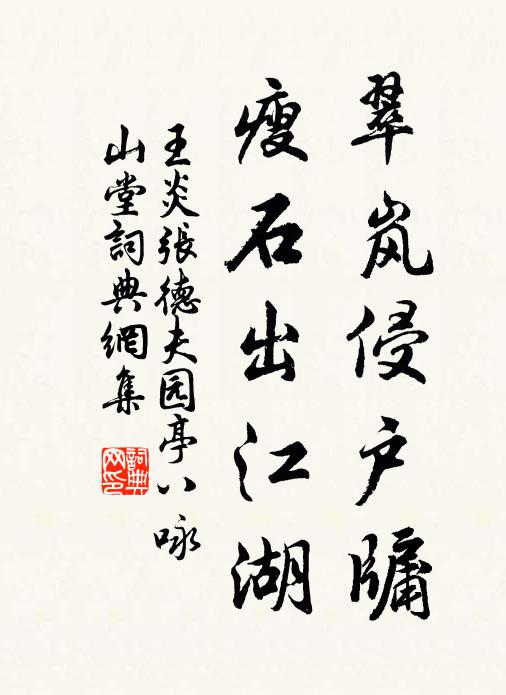 翠岚侵户牖
瘦石出江湖
王炎張德夫园亭八咏
山堂詞典網集
詞典网印